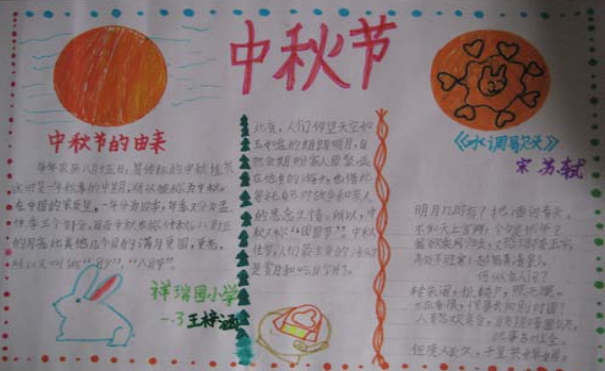 中秋节
中秋节的由来
每年农历八月十五日,是传统的中秋佳节
这时是一年秋季的中期,所以被称为中秋。
在中国的农历里,一年分为四季,每季又分为孟
仲季三个部分,因而中秋也称仲秋。八月十五
的月亮比其他几个月的满月更圆,更亮,
所以又叫做“月夕”,“八月节”。
祥瑞图小学
一.3 王梓涵
此夜,人们仰望天空如
玉如盘的朗朗明月,自
然会期盼家人团聚。远
在他乡的游子,也借此
寄托自己对故乡和亲人
的思念之情。所以,中
秋又称“团圆节”。中秋
佳节,人们最主要的活动
是赏月和吃月饼了。
《水调歌头》
宋 苏轼
明月几时有?把酒问青天。
不知天上宫阙,今夕是何年?
我欲乘风归去,又恐琼楼玉宇,
高处不胜寒!起舞弄清影,
何似在人间?
转朱阁,低绮户,照无眠。
不应有恨,何事长向别时圆?
人有悲欢离合,月有阴晴圆缺,
此事古难全。
但愿人长久,千里共婵娟。